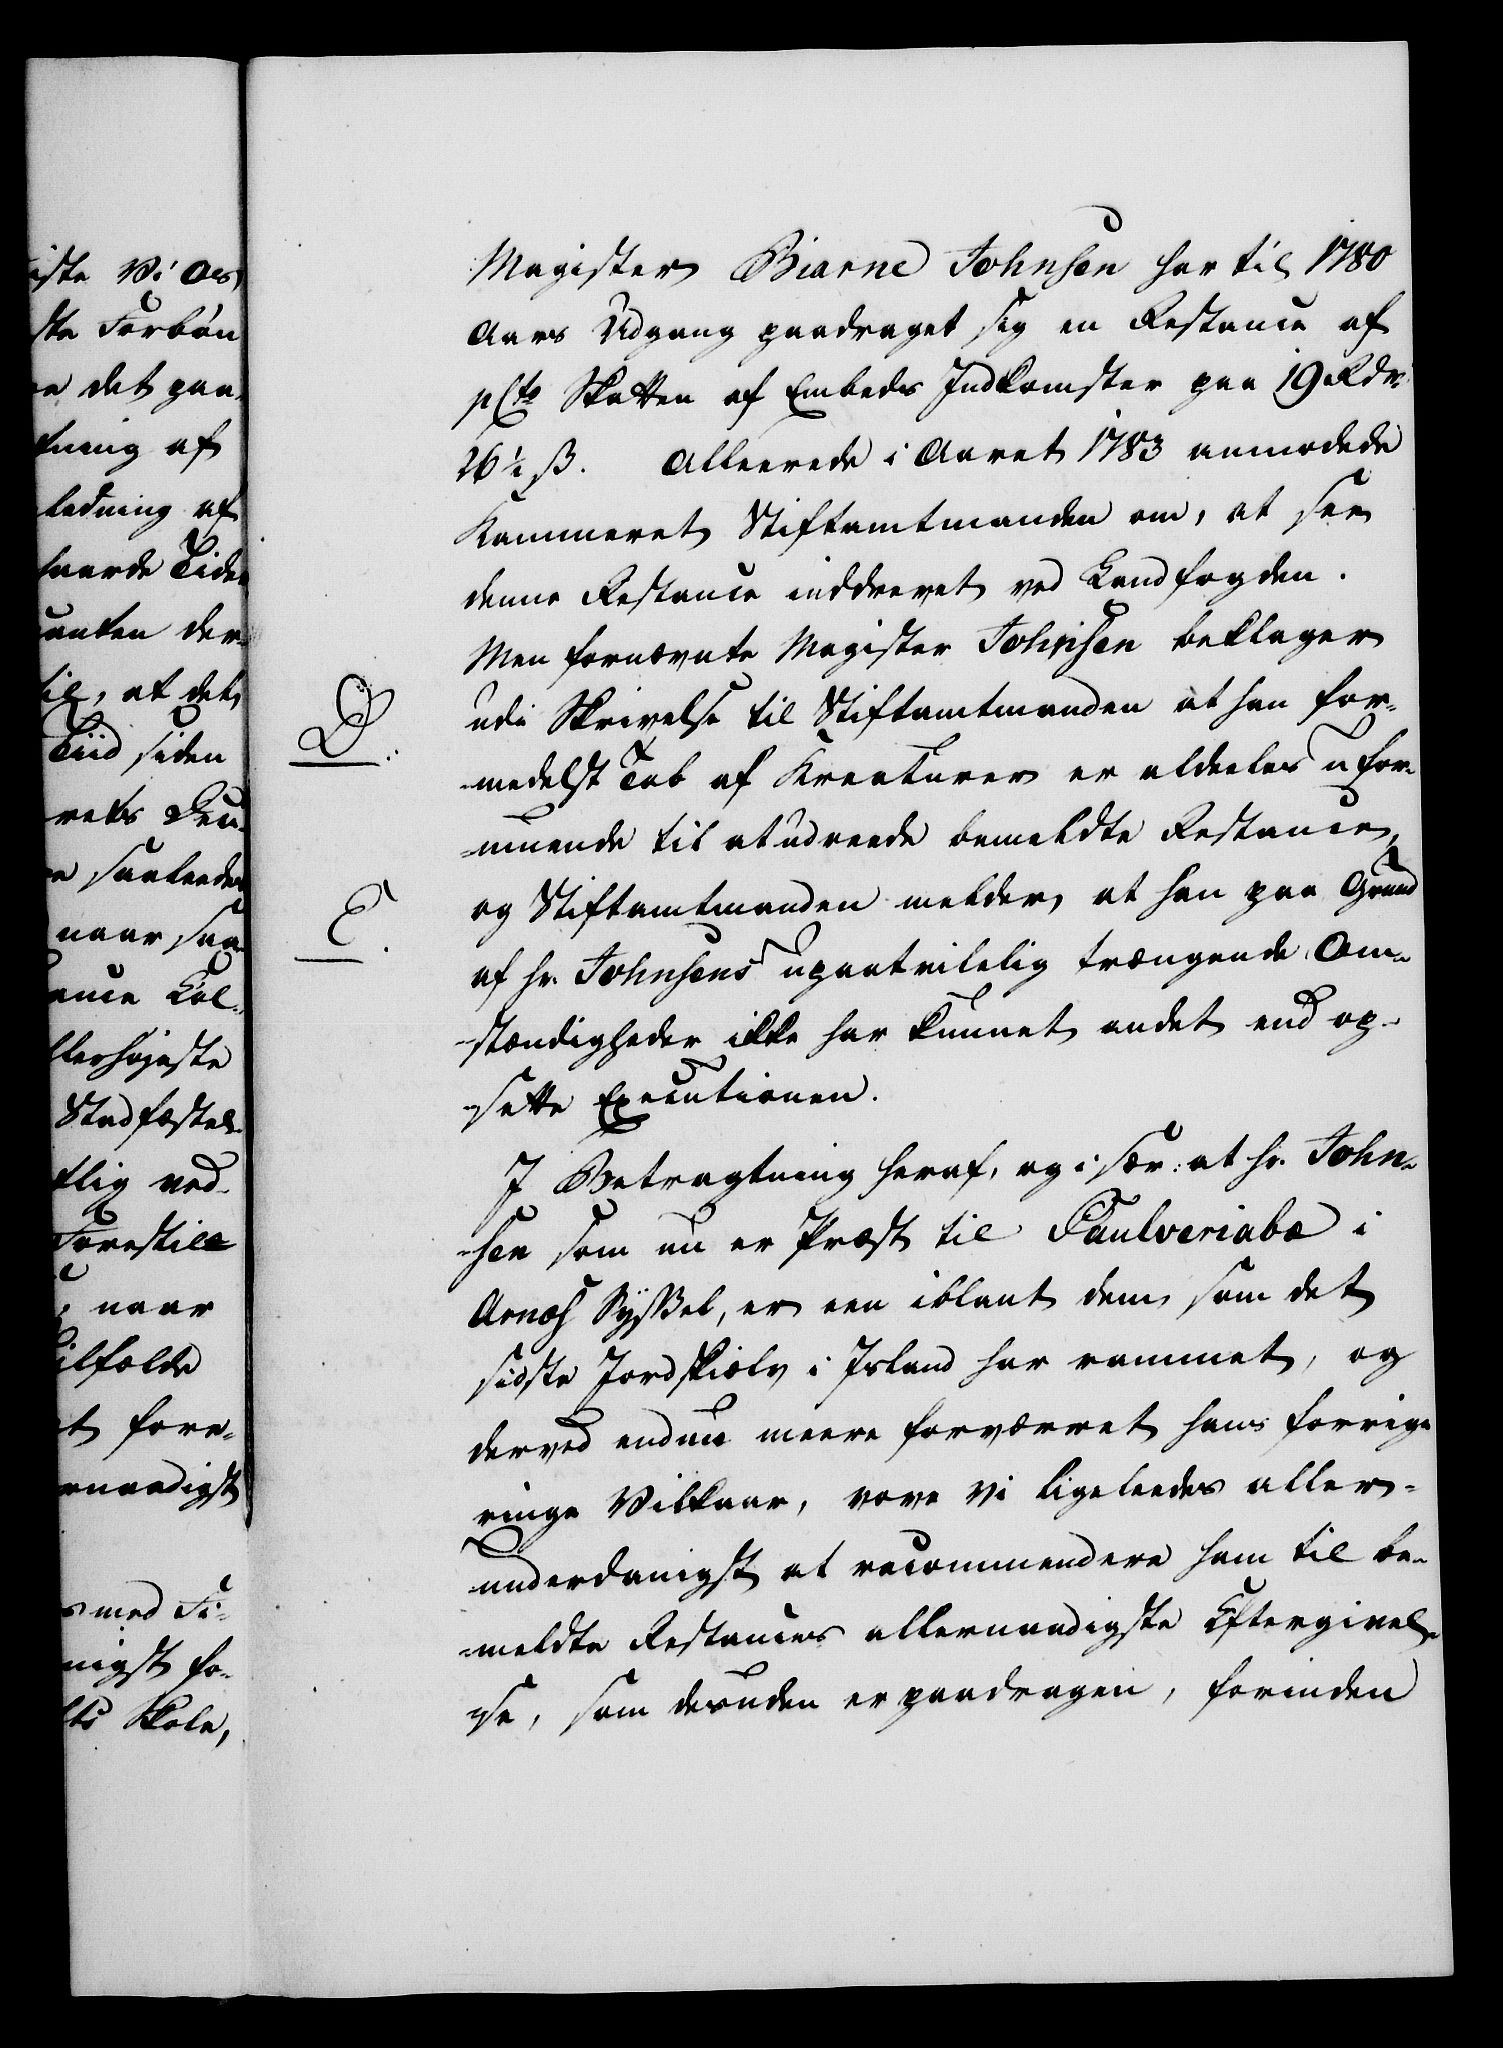 iste Vi os
ste Forbøn
e det paa-
tning af
ledning af
haarde Tider
anten der-
til, at det
Tiid siden
rets Deu-
e saaleedes
naar saa-
ance Col-
llerhøjeste
Stadfæstel-
tlig ved-
Forestill
, naar
tilfolde
t fore-
rnaadigst
s med Fi-
nigst fo-
lts Skole,
Magister Biarne Johnsen har til 1780
Aars Udgang paadraget sig en Restance af
pCto Skatten af Embeds Indkomster paa 19 Rdr.
26 ½ ß. Allerede i Aaret 1783 anmodede
Kammeret Stiftamtmanden om, at see
denne Restance inddrevet ved Landfogden.
Men fornævnte Magister Johnsen beklager
D. udi Skrivelse til Stiftamtmanden at han for-
-medelst Tab af Kreaturer er aldeeles ufor-
-muende til at udreede bemeldte Restance,
E. og Stiftamtmanden melder, at han paa Grund
af hr. Johnsens upaatvilelig trængende Om-
-stændigheder ikke har kunnet andet end op-
-sætte Executionen.
I Betragtning heraf, og i sær: at hr. John-
-sen som nu er Præst til Gaulveriabæ i
Arnæs Sÿssel, er een iblant dem som det
sidste Jordskiælv i Island har rammet, og
derved endnu meere forværret hans forrige
ringe Vilkaar, vove Vi ligeleedes aller-
-underdanigst at recommendere ham til be-
-meldte Restances allernaadigste Eftergivel-
-se, som desuden er paadragen, forinden